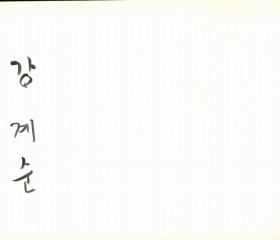 강계순